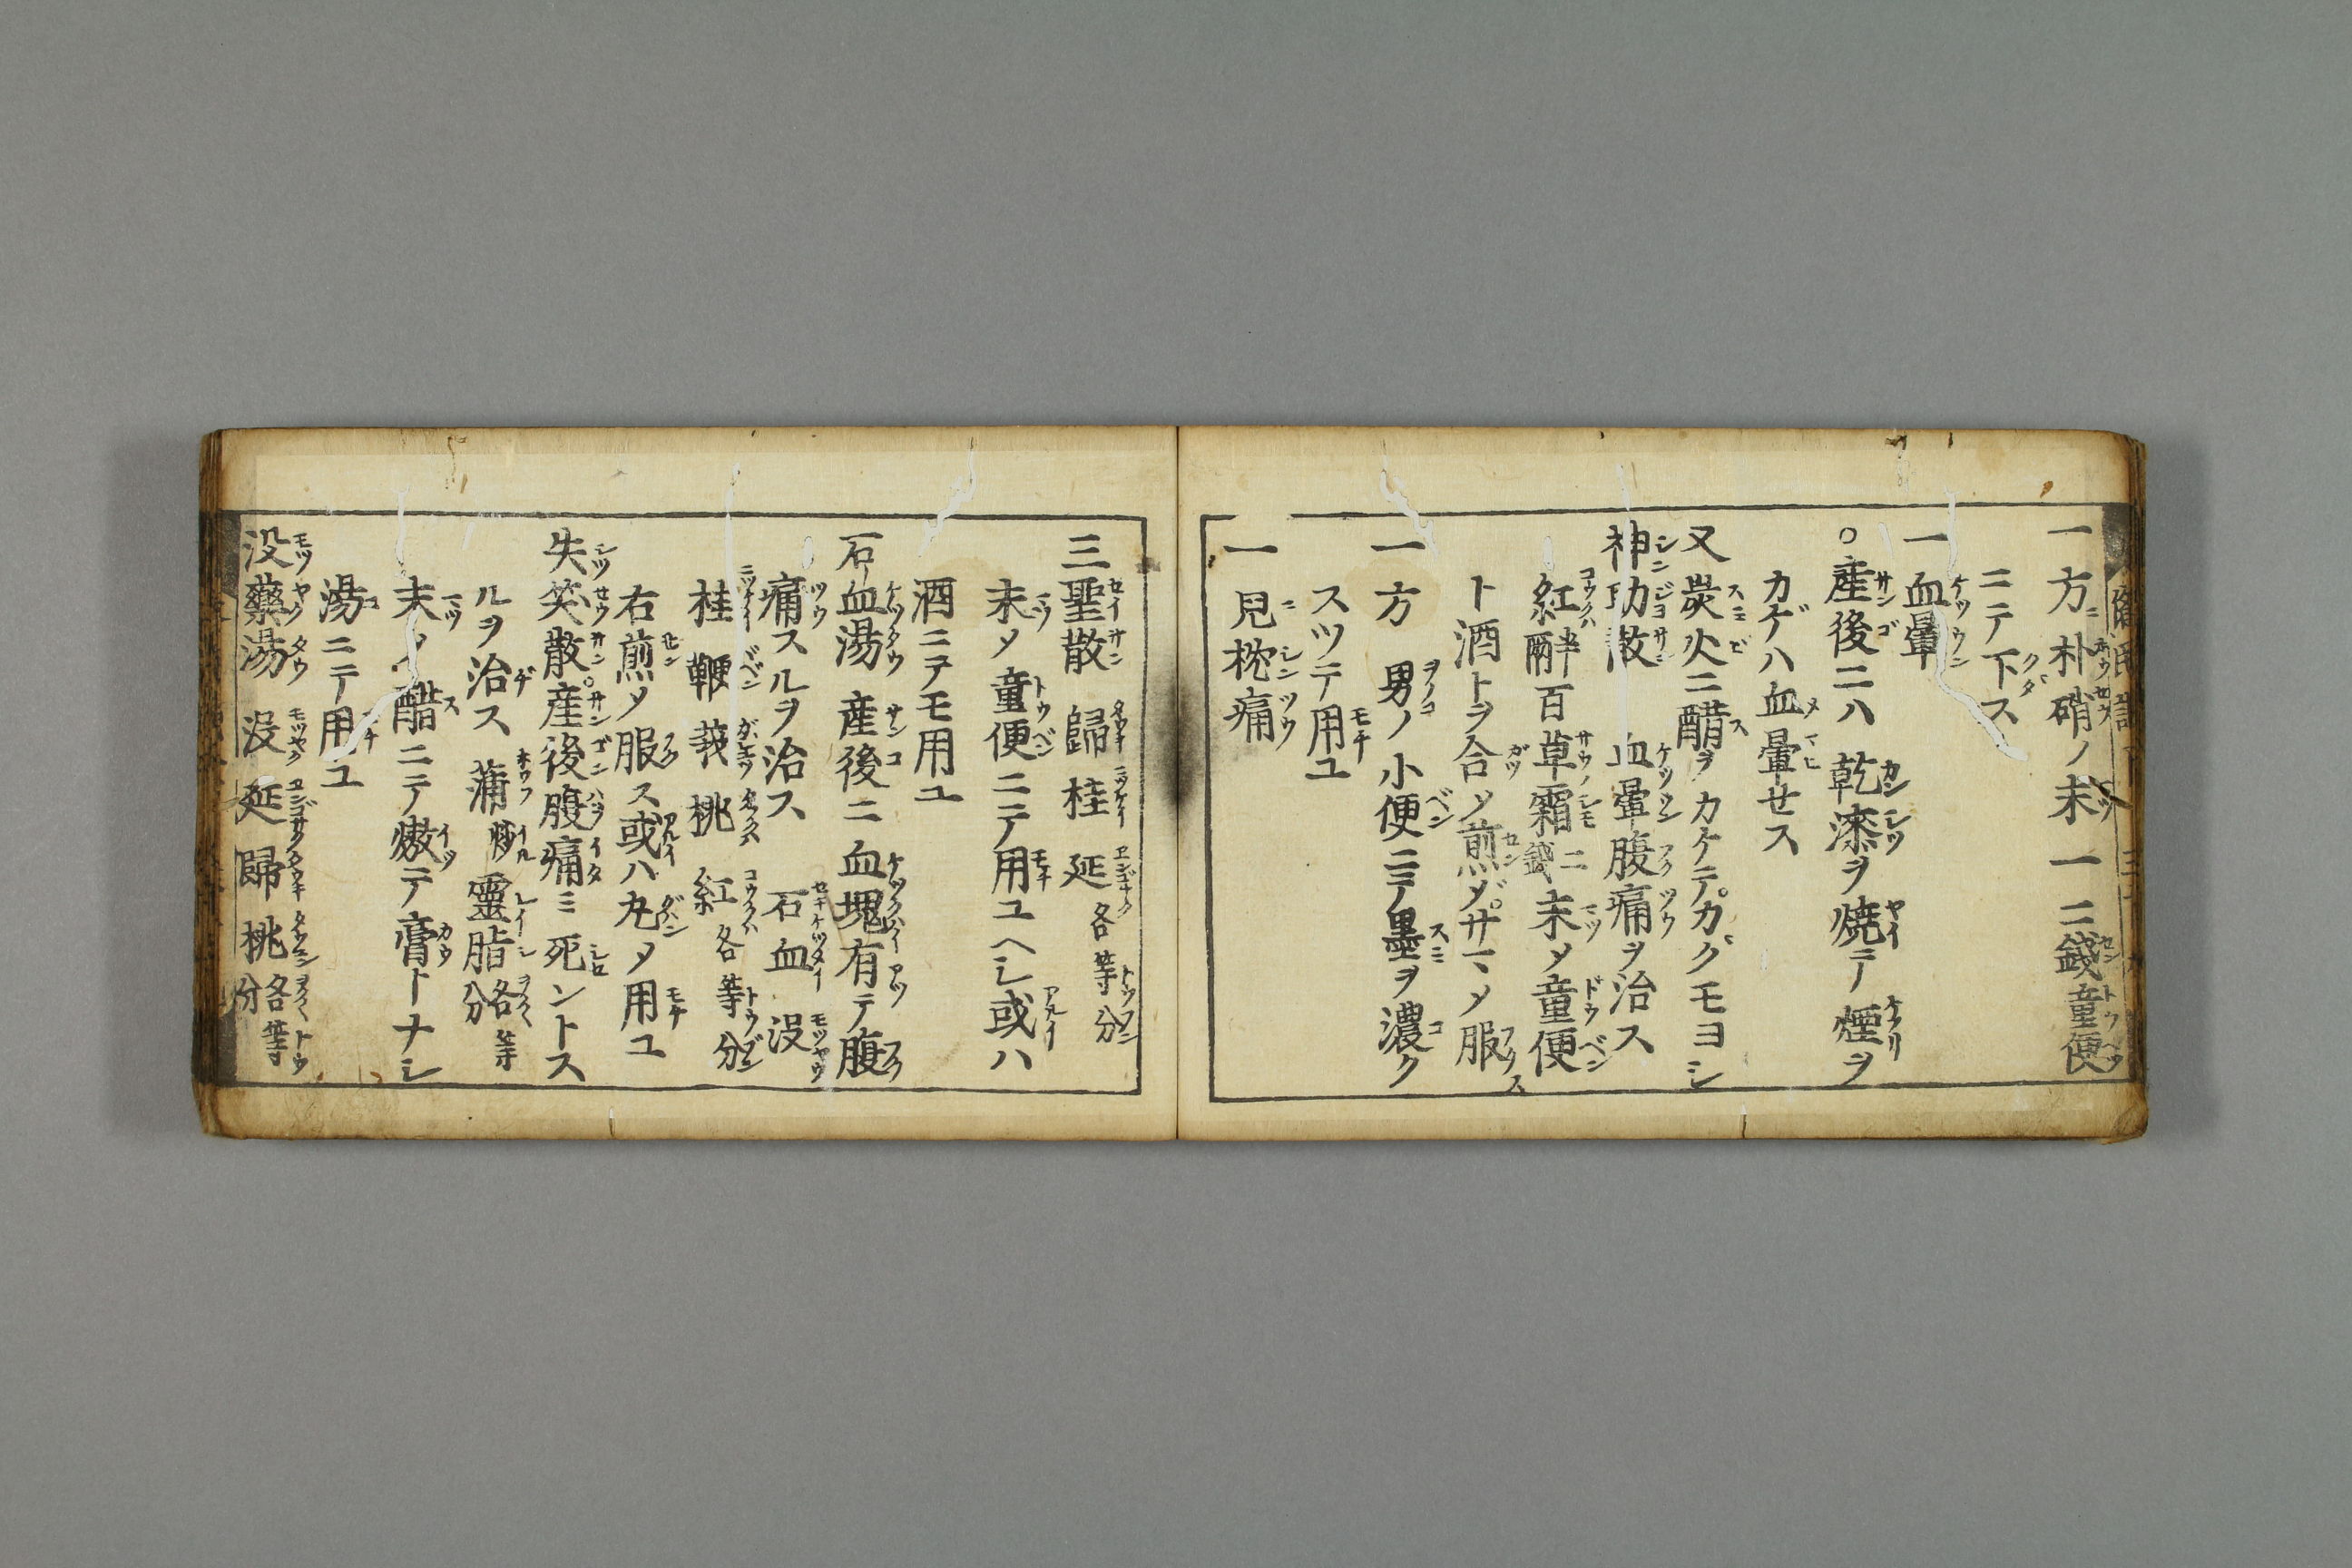 一方朴硝ノ末一二錢童便
ニテ下ス
一血暈
○産後ニハ乾漆ヲ焼テ煙ヲ
カゲハ血暈せス
又炭火ニ醋ヲカケテカクモヨシ
神功散 血暈腹痛ヲ治ス
百草霜二錢末メ童便
ト酒トヲ合ソ煎ダサマメ服ス
一方 男ノ小便ニテ墨ヲ濃ク
スツテ用ユ
一兒枕痛
三聖散 歸桂延各等分
末メ童便ニテ用ユヘシ或ハ
酒ニテモ用ユ
石血湯 産後ニ血塊有テ腹
痛スルヲ治ス 石血没
桂鞕莪桃紅各等分
右煎メ服ス或ハ丸メ用ユ
失笑散○産後腹痛ミ死ントス
ルヲ治ス 蒲炒靈脂各等分
末メ醋ニテ熬テ膏トナシ
湯ニテ用ユ
没藥湯 没延歸桃各等分